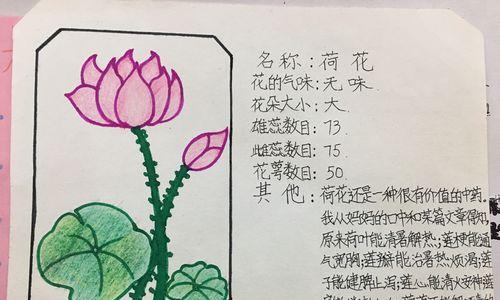 名称：荷花
花的气味：无味.
花朵大小：大.
雄蕊数目：73.
雌蕊数目：75.
花萼数目：50.
其他：荷花还是一种很有价值的中药.
我从妈妈的口中和某篇文章得知,
原来荷叶能清暑解热;莲梗能通
气宽胸;莲瓣能治暑热烦渴;莲
子能健脾止泻;莲心能清火安神;莲